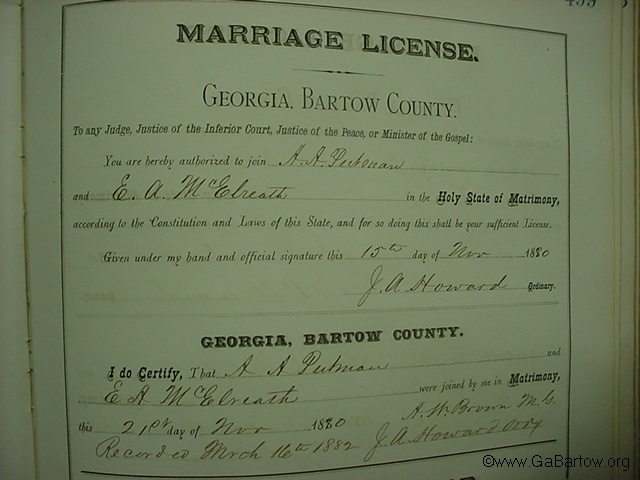 MARRIAGE LICENSE.
GEORGIA, BARTOW COUNTY.
To any Judge, Justice of the Inferior Court, Justice of the Peace, or Minister of the Gospel:
You are hereby authorized to join A. A. Putman
and E. A. McElreath in the Holy State of Matrimony,
according to the Constitution and Laws of this State, and for so doing this shall be your sufficient License.
Given under my hand and official signature this 15th day of Nov 1880
J. A. Howard Ordinary.
GEORGIA, BARTOW COUNTY.
I do Certify, That A A Putman and
E A McElreath were joined by me in Matrimony,
this 21st day of Nov 1880 A. W. Brown M. G.
Recorded Mrch 16th 1882 J A Howard Ordy
©www.GaBartow.org